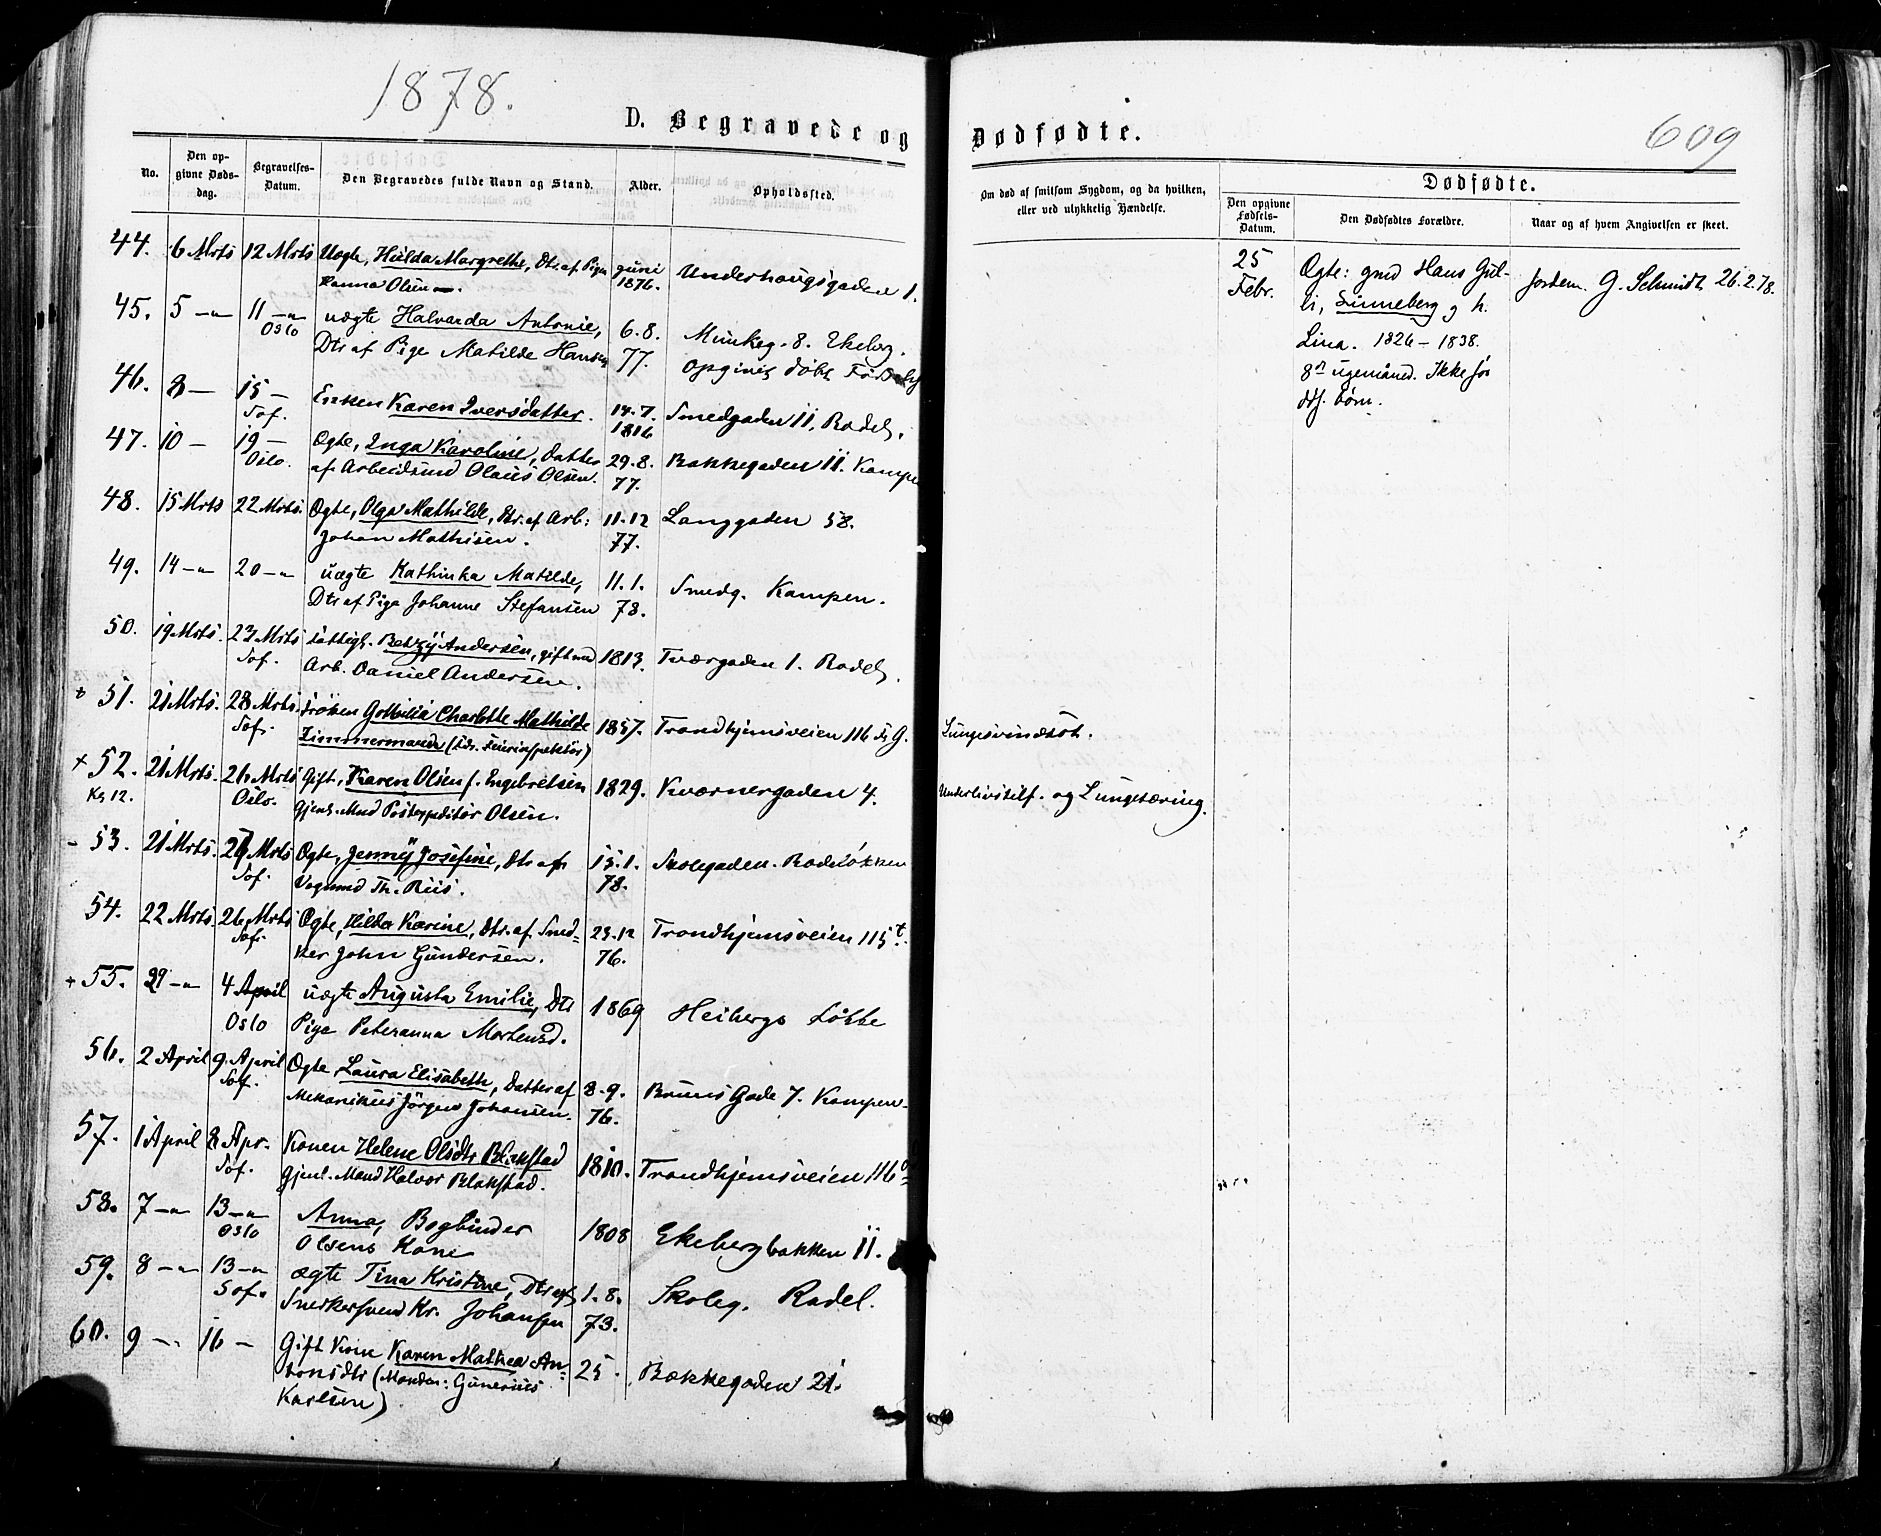 1878.
609
D. Begravede og Dødfødte.
No.
Den opgivne Dødsdag.
Begravelses-Datum.
Den Begravedes fulde Navn og Stand.
Alder.
Opholdssted.
Om død af smitsom Sygdom, og da hvilken,
eller ved ulykkelig Hændelse.
Dødfødte.
Den opgivne Fødsels-Datum.
Den Dødfødtes Forældre.
Naar og af hvem Angivelsen er skeet.
44. 6 Mrts 12 Mrts Uægte, Hulda Margrethe, Dtr. af Pige Juni Underhaugsgaden 1.
Hanna Olsen. 1876.
45. 5 -"- 11 -"- uægte Halvarda Antonie, 6.8. Munkeg. 8. Ekeberg.
Oslo Dtr af Pige Matilde Hansen 77. opgivet døbt
46. 8 - 15 - Enken Karen Iversdatter. 14.7. Smedgaden 11, Rodel.
Sof. 1816
47. 10 - 19 - Ægte, Inga Karoline, Datter 29.8. Bakkegaden 11. Kampen
Oslo. af Arbeidsmd Olaus Olsen. 77.
48. 15 Mrts 22 Mrts. Ægte, Olga Mathilde, Dtr. af Arb: 11.12 Langgaden 58.
Johan Mathisen. 77.
49. 14 -"- 20 -"- uægte Kathinka Matilde, 11.1. Smedg. Kampen.
Dtr af Pige Johanne Stefansen 78.
50. 19 Mrts. 23 Mrts fattigl. Betzy Andersen, gift med 1813. Tværgaden 1. Rodel.
Sof. Arb. Daniel Andersen.
+ 51. 21 Mrts. 28 Mrts. Frøken Charlotte Mathilde 1857. Trondhjemsveien 116 Lungesvindsot.
Sof. Zimmermann
+ 52. 21 Mrts. 26 Mrts Gift, Karen Olsen f. Engebretsen 1829. Kværnergaden 4. og Lungetæring.
Kg 12. Oslo. Gjenl. Mnd Postexpeditør Olsen.
- 53. 21 Mrts. 27 Mrts Ægte, Jenny Josefine, Dtr af 15.1. Skolegaden. Rodeløkken
Sof. Vognmd Th. Riis. 78.
54. 22 Mrts. 26 Mrts Ægte, Hilda Karine, Dtr. af Sned- 23.12 Trondhjemsveien 115
Sof. ker John Gundersen. 76.
+ 55. 29 -"- 4 April uægte Augusta Emilie, Dtr 1869 Heibergs Løkke
Oslo Pige Peteranna Mortensd.
56. 2 April 9. April Ægte Laura Elisabeth, Datter af 8.9. Bruns Gade 7. Kampen
Sof. Mekanikus Jørgen Johansen. 76.
57. 1 April 8 Apr. Konen Helene Olsdtr Blakstad 1810. Trondhjemsveien 116
Sof. Gjenl. Mand Halvor Blakstad.
58. 7 -"- 13 -"- Anna, Bogbinder 1808 Ekebergbakken 11.
Oslo Olsens Kone
59. 8 -"- 13 -"- ægte Tina Kristine, Dtr af 1.8. Skoleg. Rodel.
Sof. Snekkersvend Kr. Johansen 73.
60. 9 -"- 16 - Gift Kone Karen Mathea An- 25. Bakkegaden 21.
tonsdtr (Manden: Gunerius
Karlsen)
25
Febr.
Ægte: gmd Hans Gul-
li, Linneberg og h.
Lina. 1826 - 1838.
8n ugemåned. Ikke før
df. børn.
Jordem. G. Schmidt 26.2.78.